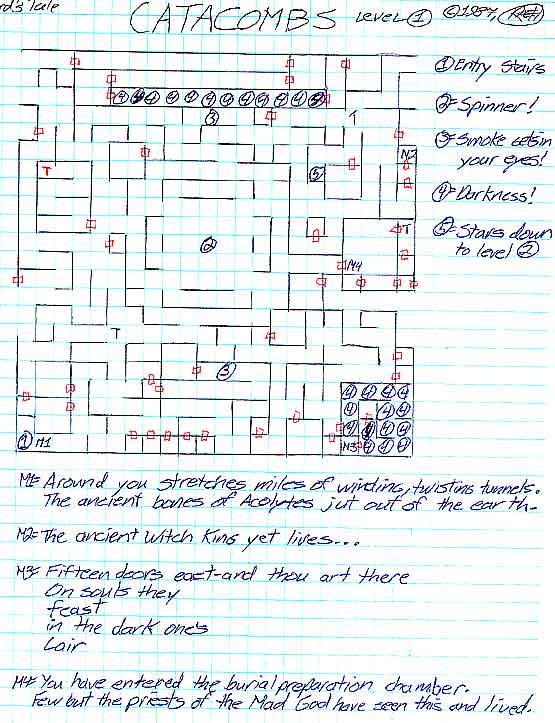 rd's Tale
CATACOMBS Level ① ©1987,
① Entry Stairs
②= Spinner!
③= Smoke gets in
your eyes!
④= Darkness!
⑤= Stars down
to level ②
④ ④ ④ ④ ④ ④ ④ ④ ④ ④ ④
③
T
M2
T
⑤
T
②
M4
T
③
④ ④ ④ ④
④ ④ ④
④ ④ ④ ④
① M1
M3 ④ ④ ④
M1= Around you stretches miles of winding, twisting tunnels.
The ancient bones of Acolytes jut out of the earth.
M2= The ancient witch King yet lives...
M3= Fifteen doors east-and thou art there
On souls they
feast
in the dark one's
Lair
M4= You have entered the burial preparation chamber.
Few but the priests of the Mad God have seen this and lived.